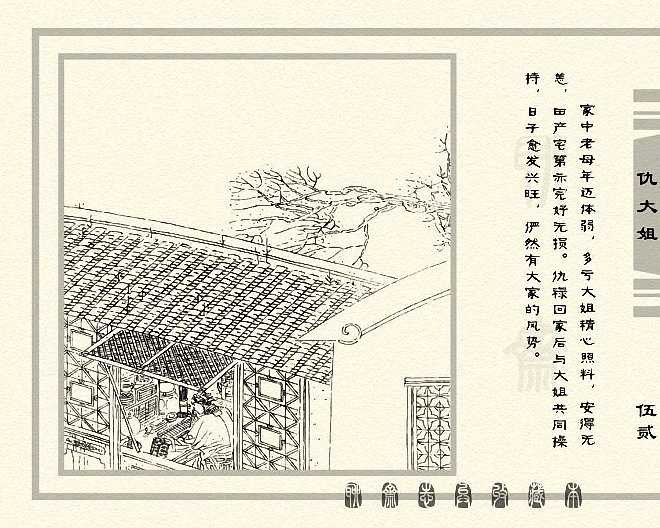 仇大姐
伍贰
家中老母年迈体弱，多亏大姐精心照料，安得无
恙，田产宅第亦完好无损。仇禄回家后与大姐共同操
持，日子愈发兴旺，俨然有大家的风势。